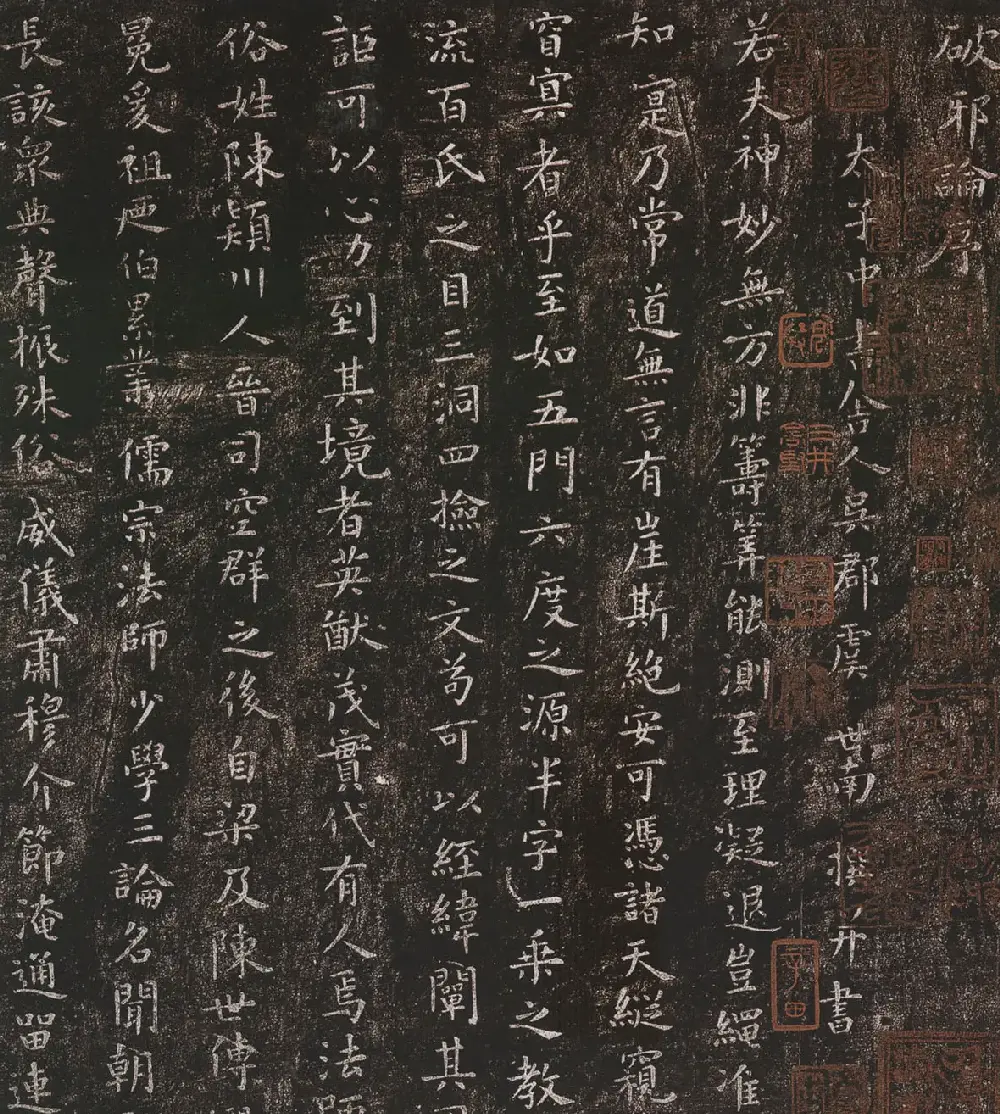 破邪論序
太子中書舍人吳郡虞世南撰并書
若夫神妙無方非籌筭能測至理凝邈豈繩准
知寔乃常道無言有崖斯絕安可憑諸天縱窺
窅冥者乎至如五門六度之源半字一乘之教
流百氏之目三洞四撿之文苟可以經緯闡其
詎可以心力到其境者英猷茂實代有人焉法師
俗姓陳潁川人晉司空群之後自梁及陳世傳
冕爰祖迊伯累業儒宗法師少學三論名聞朝
長該眾典聲振殊俗威儀肅穆介節淹通留連